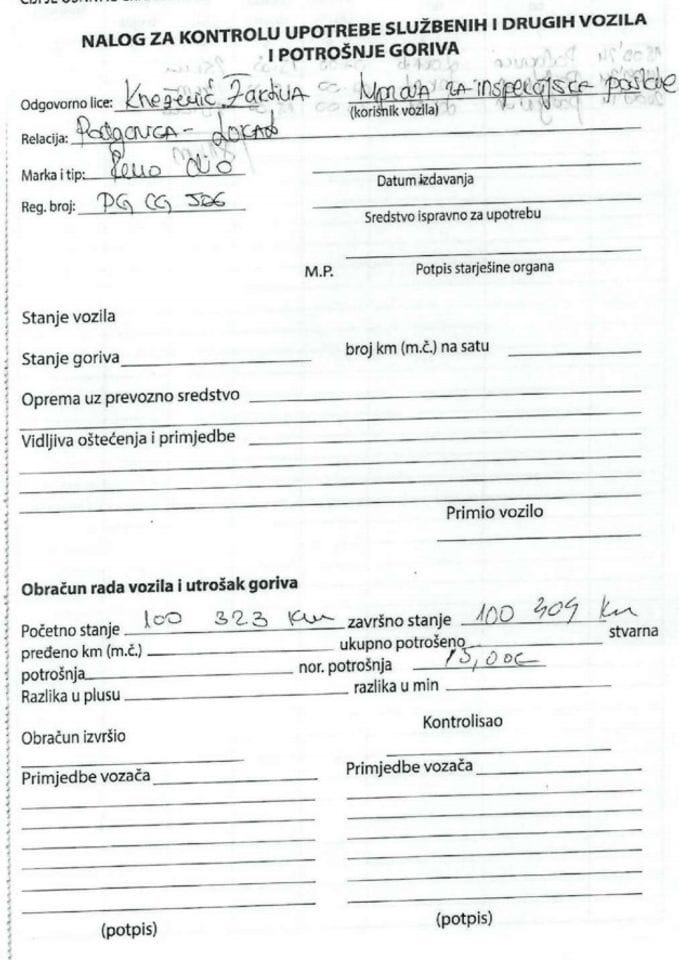 NALOG ZA KONTROLU UPOTREBE SLUŽBENIH I DRUGIH VOZILA
I POTROŠNJE GORIVA
Odgovorno lice: Knežević Zardija Uprava za inspekcijske poslove
(korisnik vozila)
Relacija: Podgorica - Lokal
Marka i tip: Reno Clio
Datum izdavanja
Reg. broj: PG CG 526
Sredstvo ispravno za upotrebu
M.P. Potpis starješine organa
Stanje vozila
Stanje goriva broj km (m.č.) na satu
Oprema uz prevozno sredstvo
Vidljiva oštećenja i primjedbe
Primio vozilo
Obračun rada vozila i utrošak goriva
Početno stanje 100 323 km završno stanje 100 409 km
pređeno km (m.č.) ukupno potrošeno stvarna
potrošnja nor. potrošnja 15,00€
Razlika u plusu razlika u min
Kontrolisao
Obračun izvršio
Primjedbe vozača Primjedbe vozača
(potpis) (potpis)